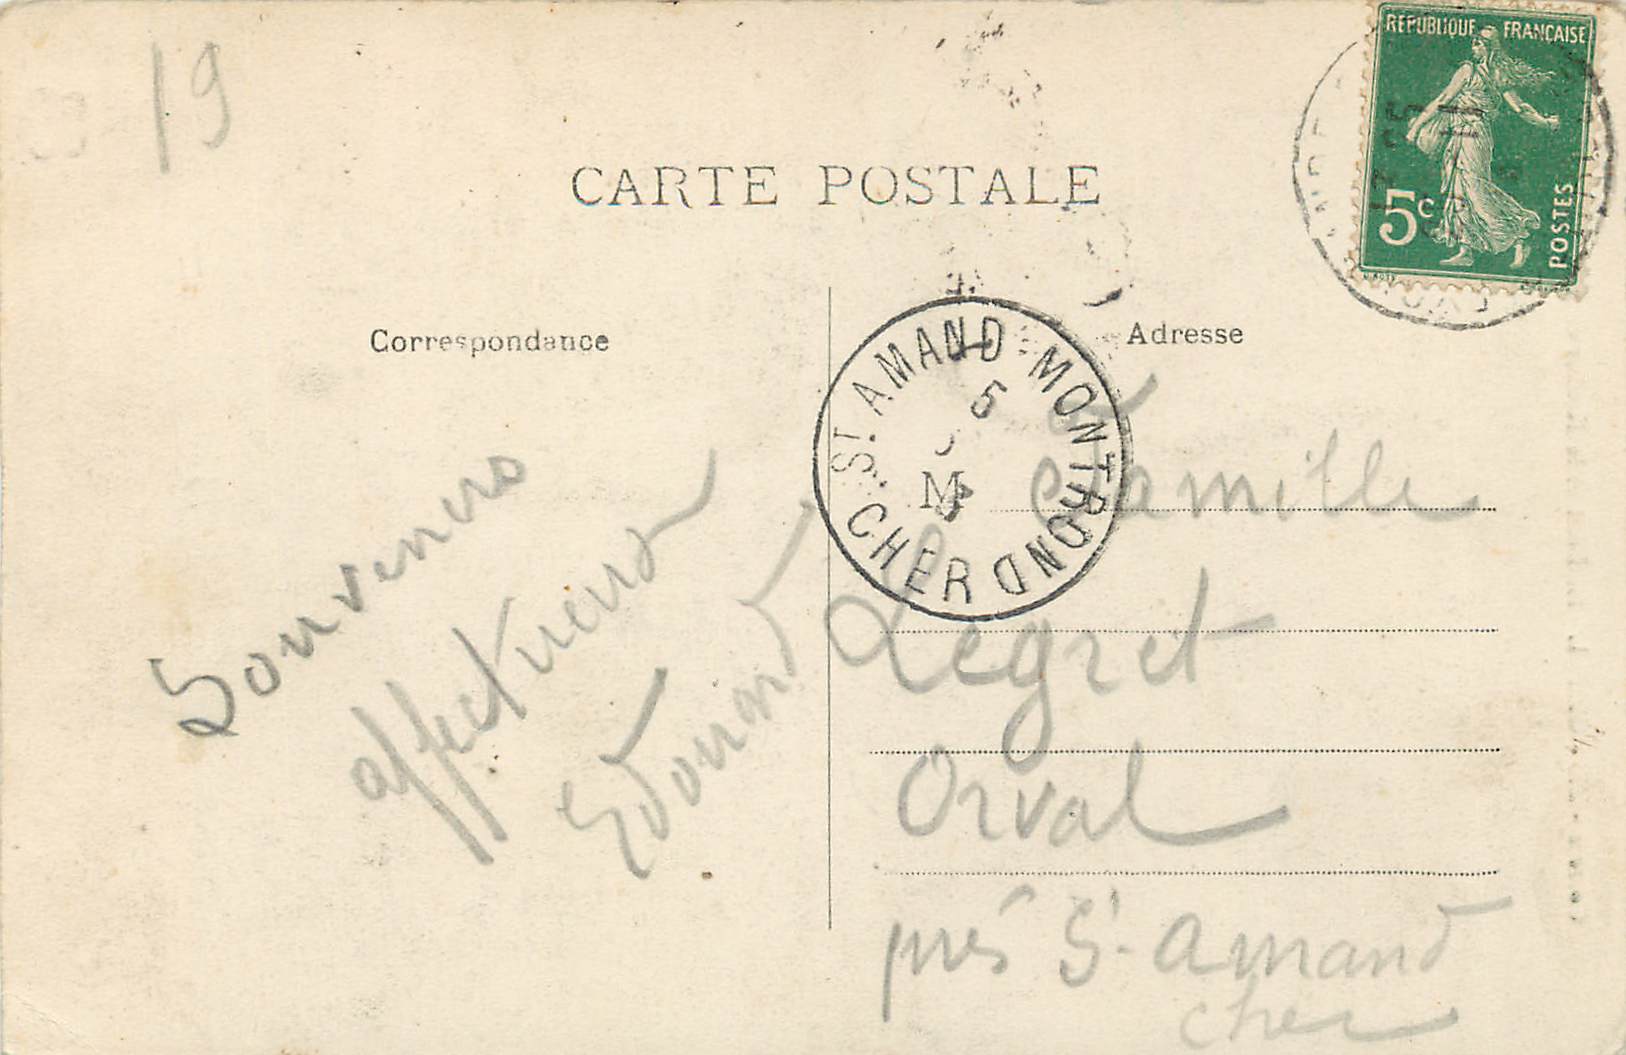 19
RÉPUBLIQUE FRANÇAISE
5c
POSTES
CARTE POSTALE
Correspondance
Adresse
ST. AMAND-MONTROND
5
M
CHER
Souvenirs
affectueux
Edouard
Famille
Legret
Orval
près St-Amand
Cher